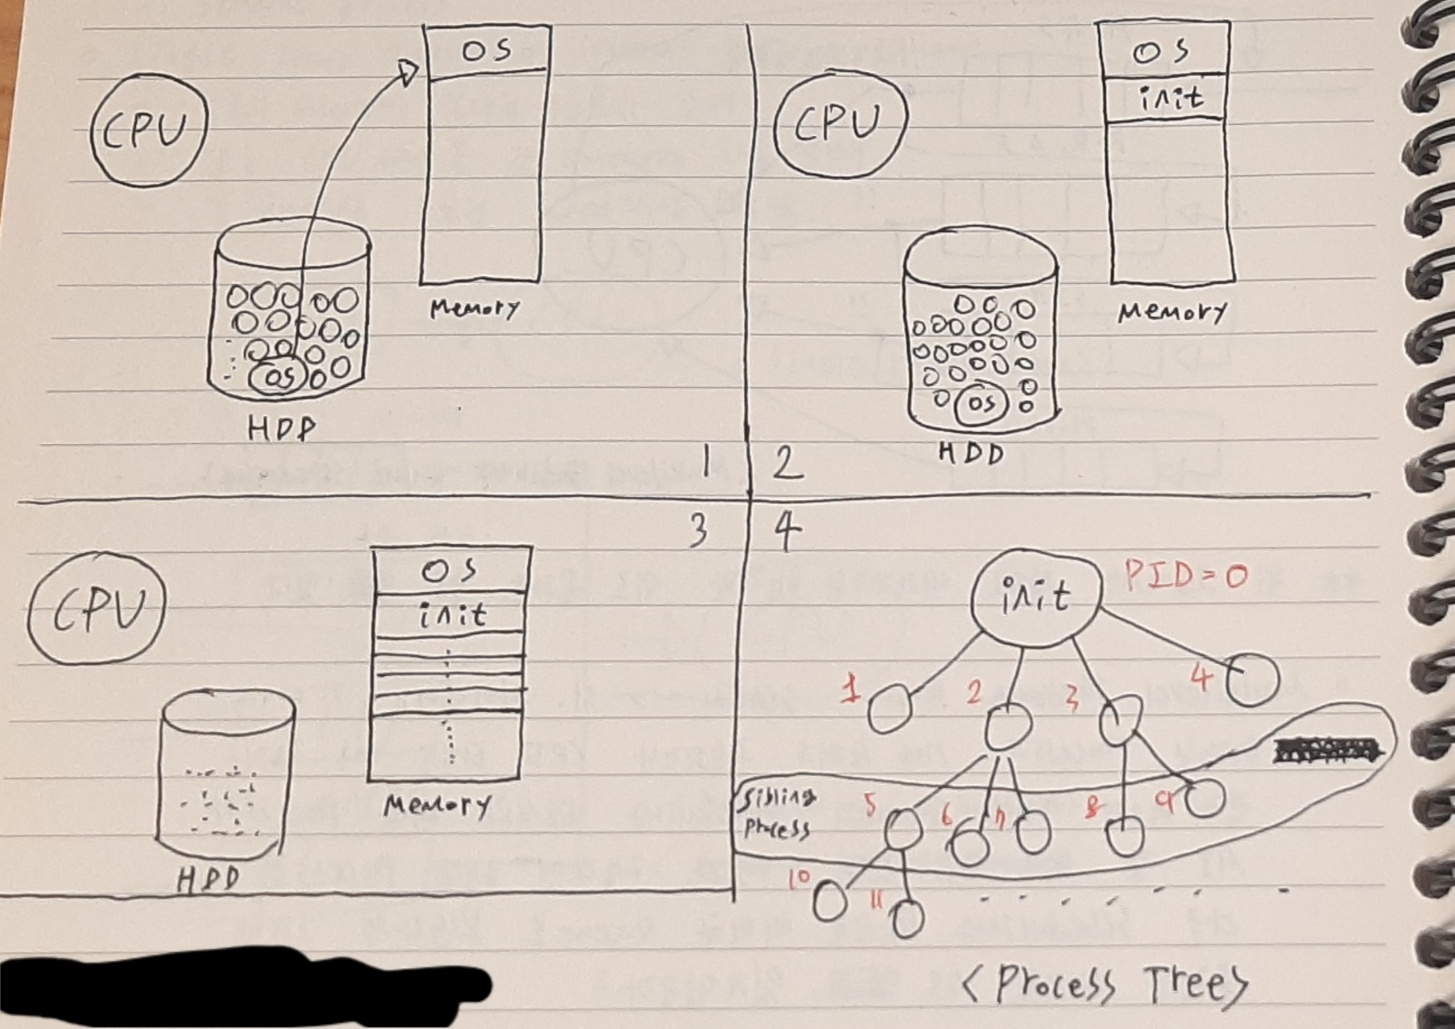 CPU
OS
Memory
OS
HDD
1
CPU
OS
init
Memory
OS
HDD
2
3
CPU
OS
init
Memory
HDD
4
init
PID=0
1
2
3
4
Sibling
Process
5
6
7
8
9
10
11
<Process Tree>